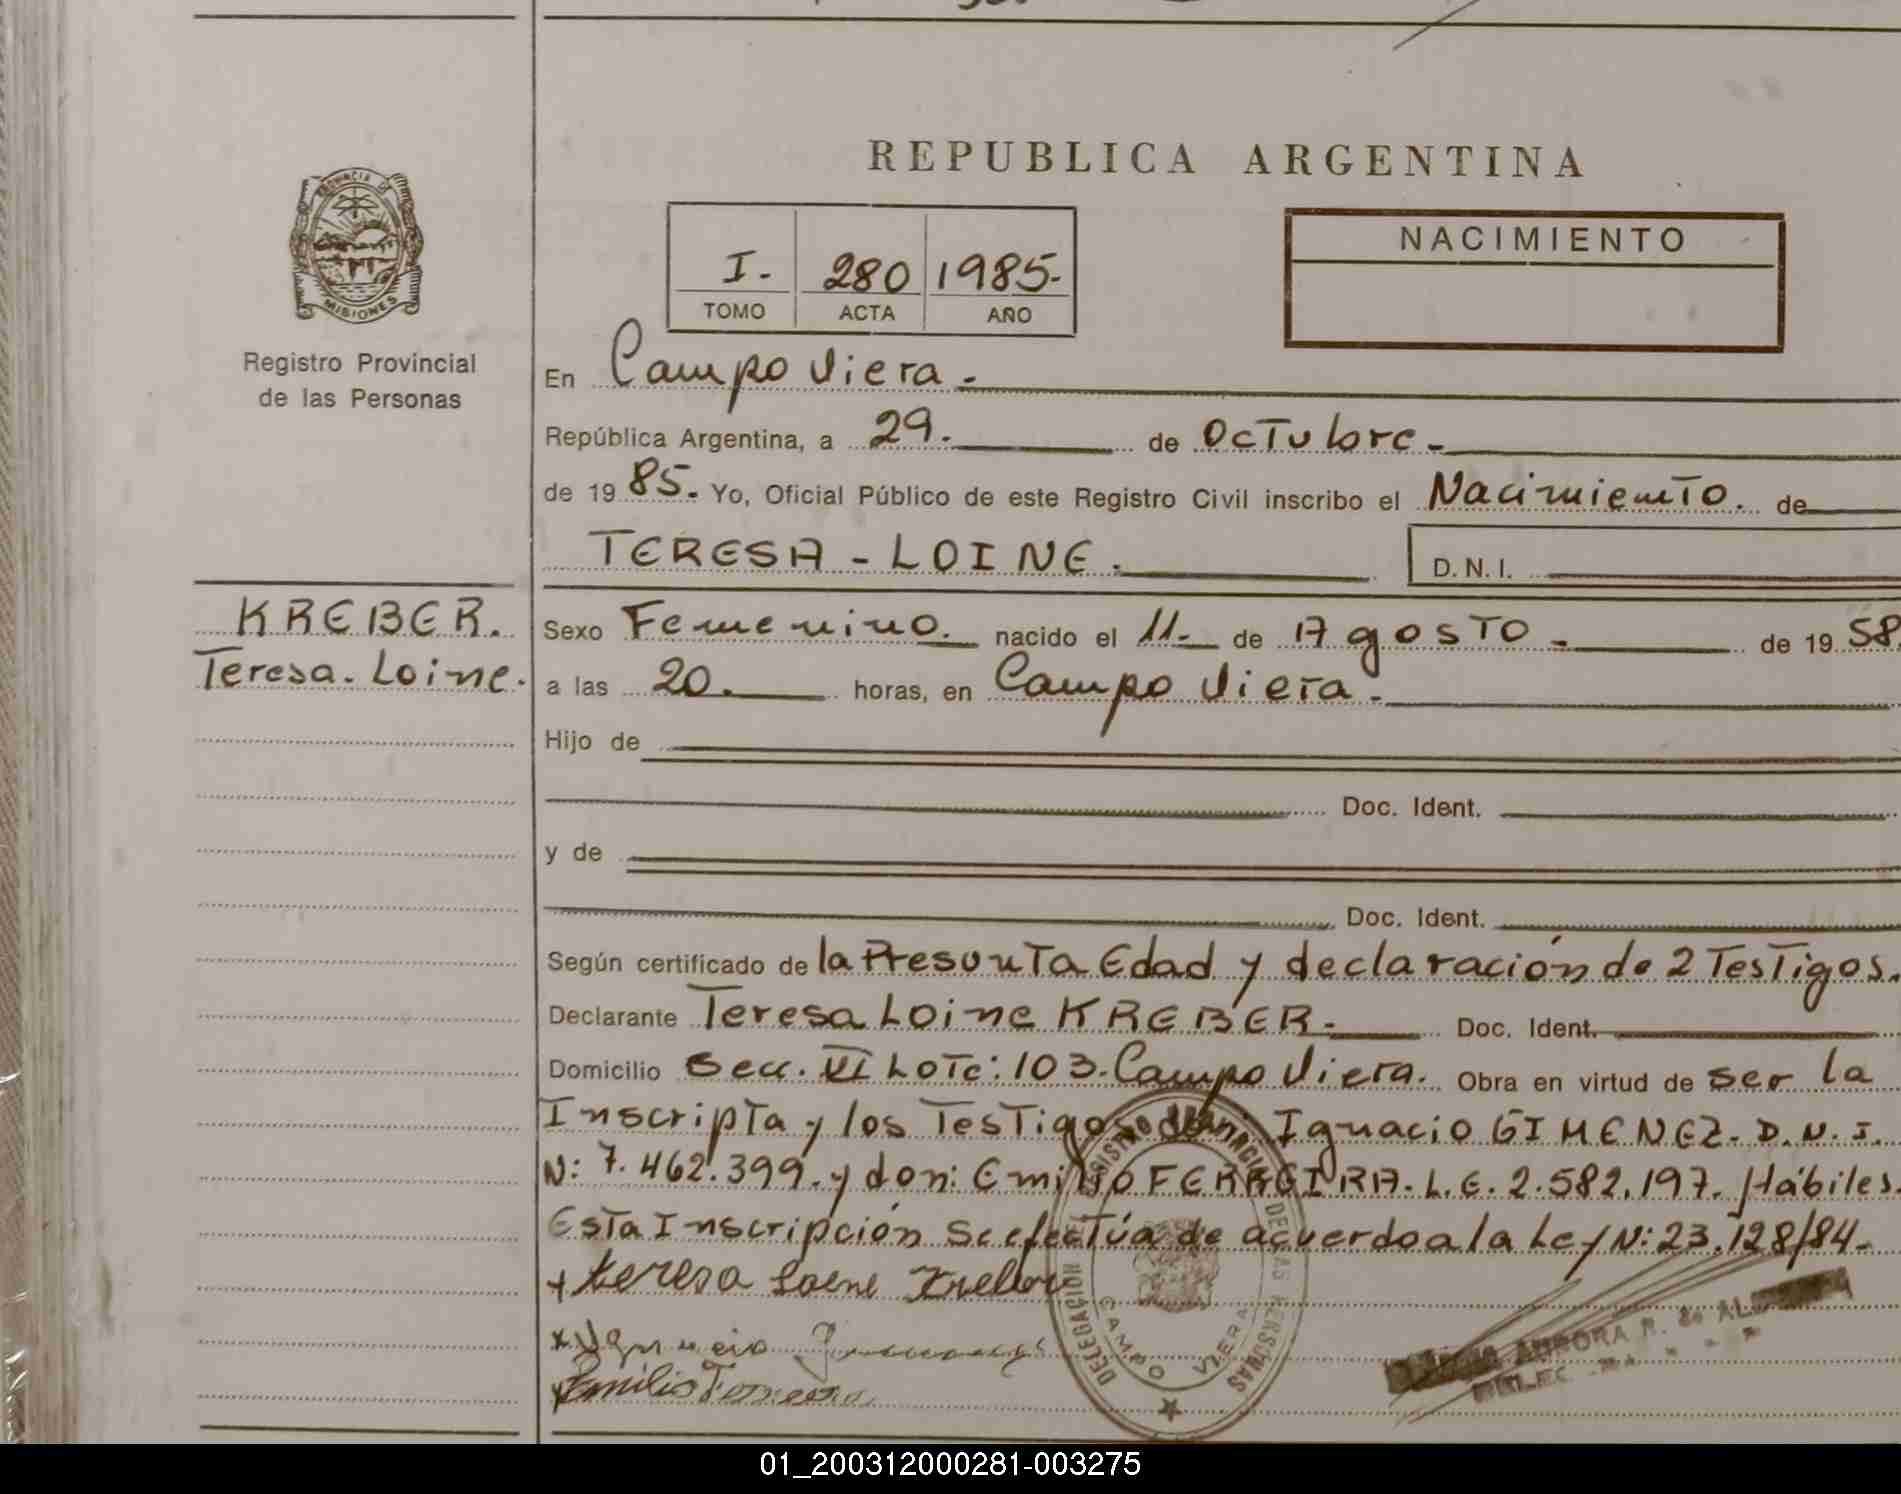 REPUBLICA ARGENTINA
PROVINCIA DE MISIONES
Registro Provincial
de las Personas
I. 280 1985.
TOMO ACTA AÑO
NACIMIENTO
En Campo Viera.
República Argentina, a 29. de Octubre.
de 19 85. Yo, Oficial Público de este Registro Civil inscribo el Nacimiento. de
TERESA - LOINE. D.N.I.
KREBER.
Teresa. Loine.
Sexo Femenino. nacido el 11. de Agosto. de 19 58.
a las 20. horas, en Campo Viera.
Hijo de
Doc. Ident.
y de
Doc. Ident.
Según certificado de la Presunta Edad y declaración de 2 Testigos.
Declarante Teresa Loine KREBER. Doc. Ident.
Domicilio Secc. VI Lote: 103. Campo Viera. Obra en virtud de ser la
Inscripta y los Testigos don: Ignacio GIMENEZ. D.N.I.
N: 7.462.399. y don: Emilio FERREIRA. L.E. 2.582.197. Hábiles.
Esta Inscripción se efectúa de acuerdo a la Ley N: 23.128/84.
+ teresa Loene Kreber
x Ygnacio
Emilio Ferreira
DELEGACION CAMPO VIERA
DE LAS PERSONAS
AURORA R. de
01_200312000281-003275